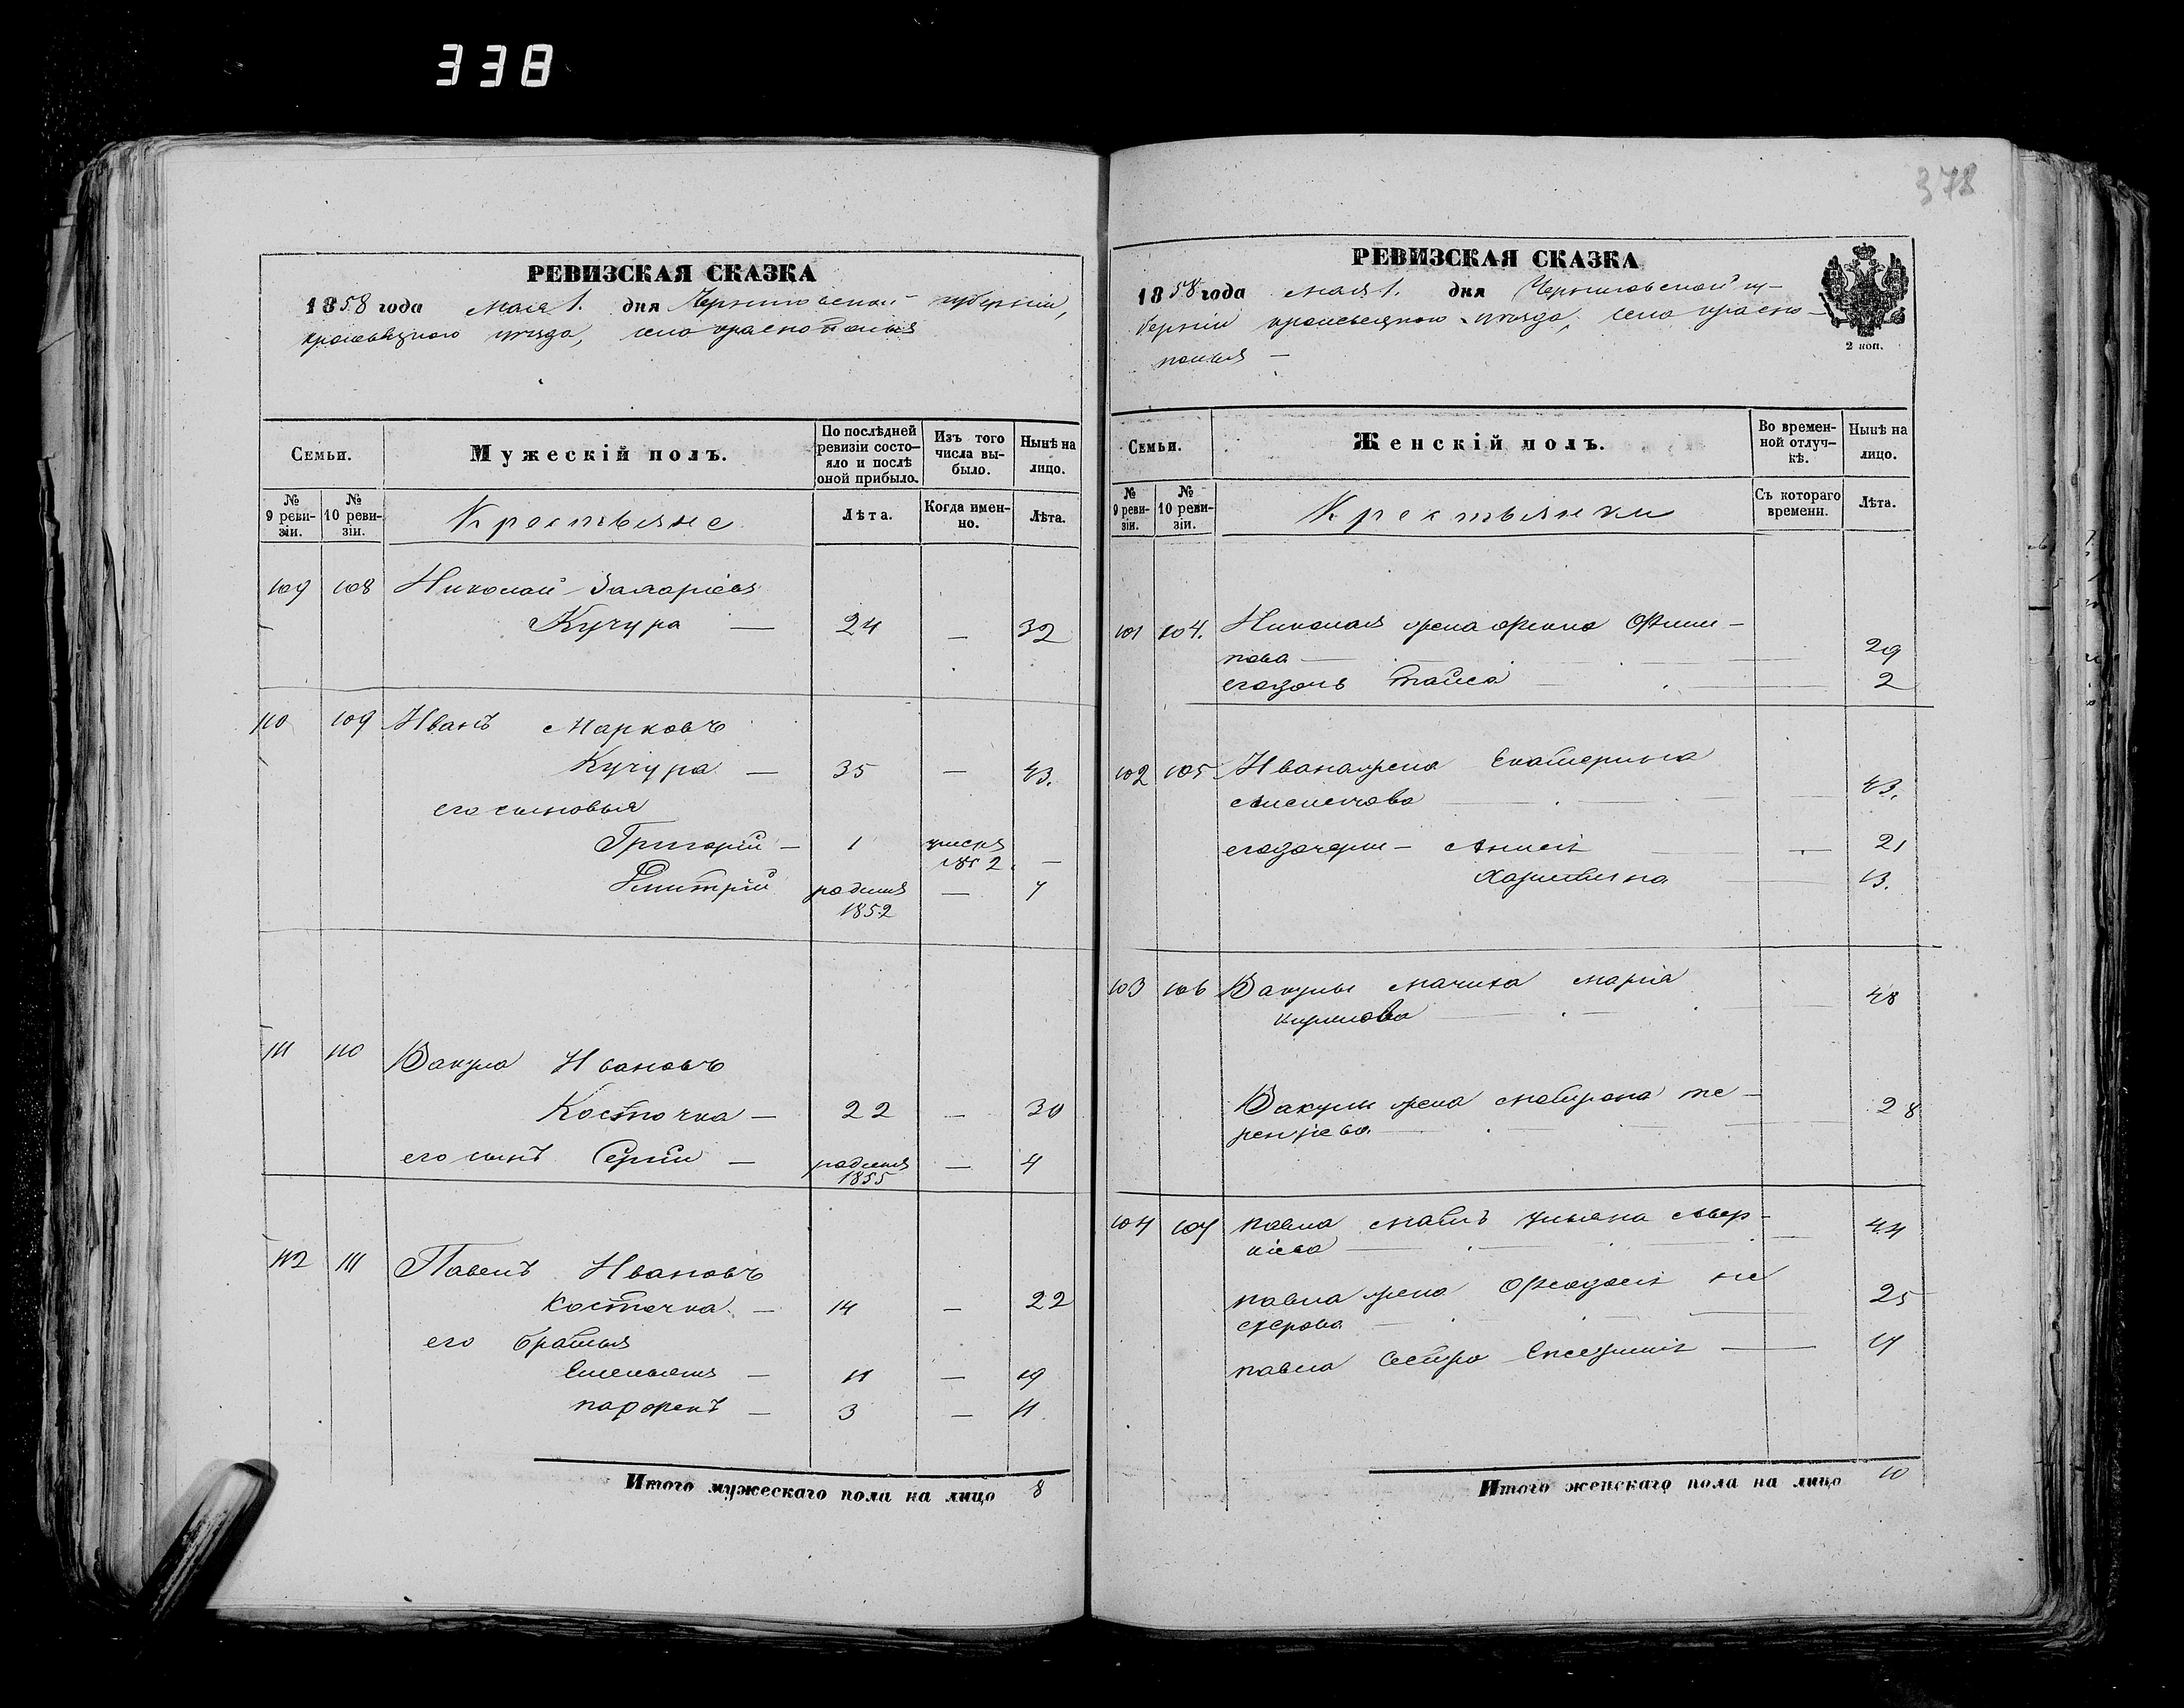 338
378
РЕВИЗСКАЯ СКАЗКА
1858 года мая 1. дня Черниговской губерніи,
кролевецкаго уезда, села краснополья
Семьи. Мужескій полъ. По послѣдней ревизіи состояло и послѣ оной прибыло. Изъ того числа выбыло. Нынѣ на лицо.
№ 9 ревизіи. № 10 ревизіи. Крестьяне Лѣта. Когда именно. Лѣта.
109 108 Николай Захаріевъ
Кучура — 24 — 32
110 109 Иванъ Марковъ
Кучура — 35 — 43.
его сыновья
Григорій — 1 1852 —
Дмитрій родился 1852 — 7
111 110 Вакула Ивановъ
Косточка — 22 — 30
его сынъ Сергій — родился 1855 — 4
112 111 Павелъ Ивановъ
Косточка — 14 — 22
его братья
Емельянъ — 11 — 19
парфенъ — 3 — 11
Итого мужескаго пола на лицо 8
РЕВИЗСКАЯ СКАЗКА
1858 года мая 1. дня Черниговской гу-
берніи кролевецкаго уезда, села красно-
полья —
2 коп.
Семьи. Женскій полъ. Во временной отлучкѣ. Нынѣ на лицо.
№ 9 ревизіи. № 10 ревизіи. Крестьянки Съ котораго времени. Лѣта.
101 104. Николая жена Фили-
пова — 29
его дочь таиса — 2
102 105 Ивана жена Екатерина
43.
его дочери — Анисія — 21
Харитина 13.
103 106 Вакулы мачиха марія
кирилова — 48
Вакулы жена матрона те-
рентіева. 28
104 107 павла мать ульяна Авер-
кіева — 44
павла жена Феодосія не
стерова — 25
павла Сестра 17
Итого женскаго пола на лицо 10